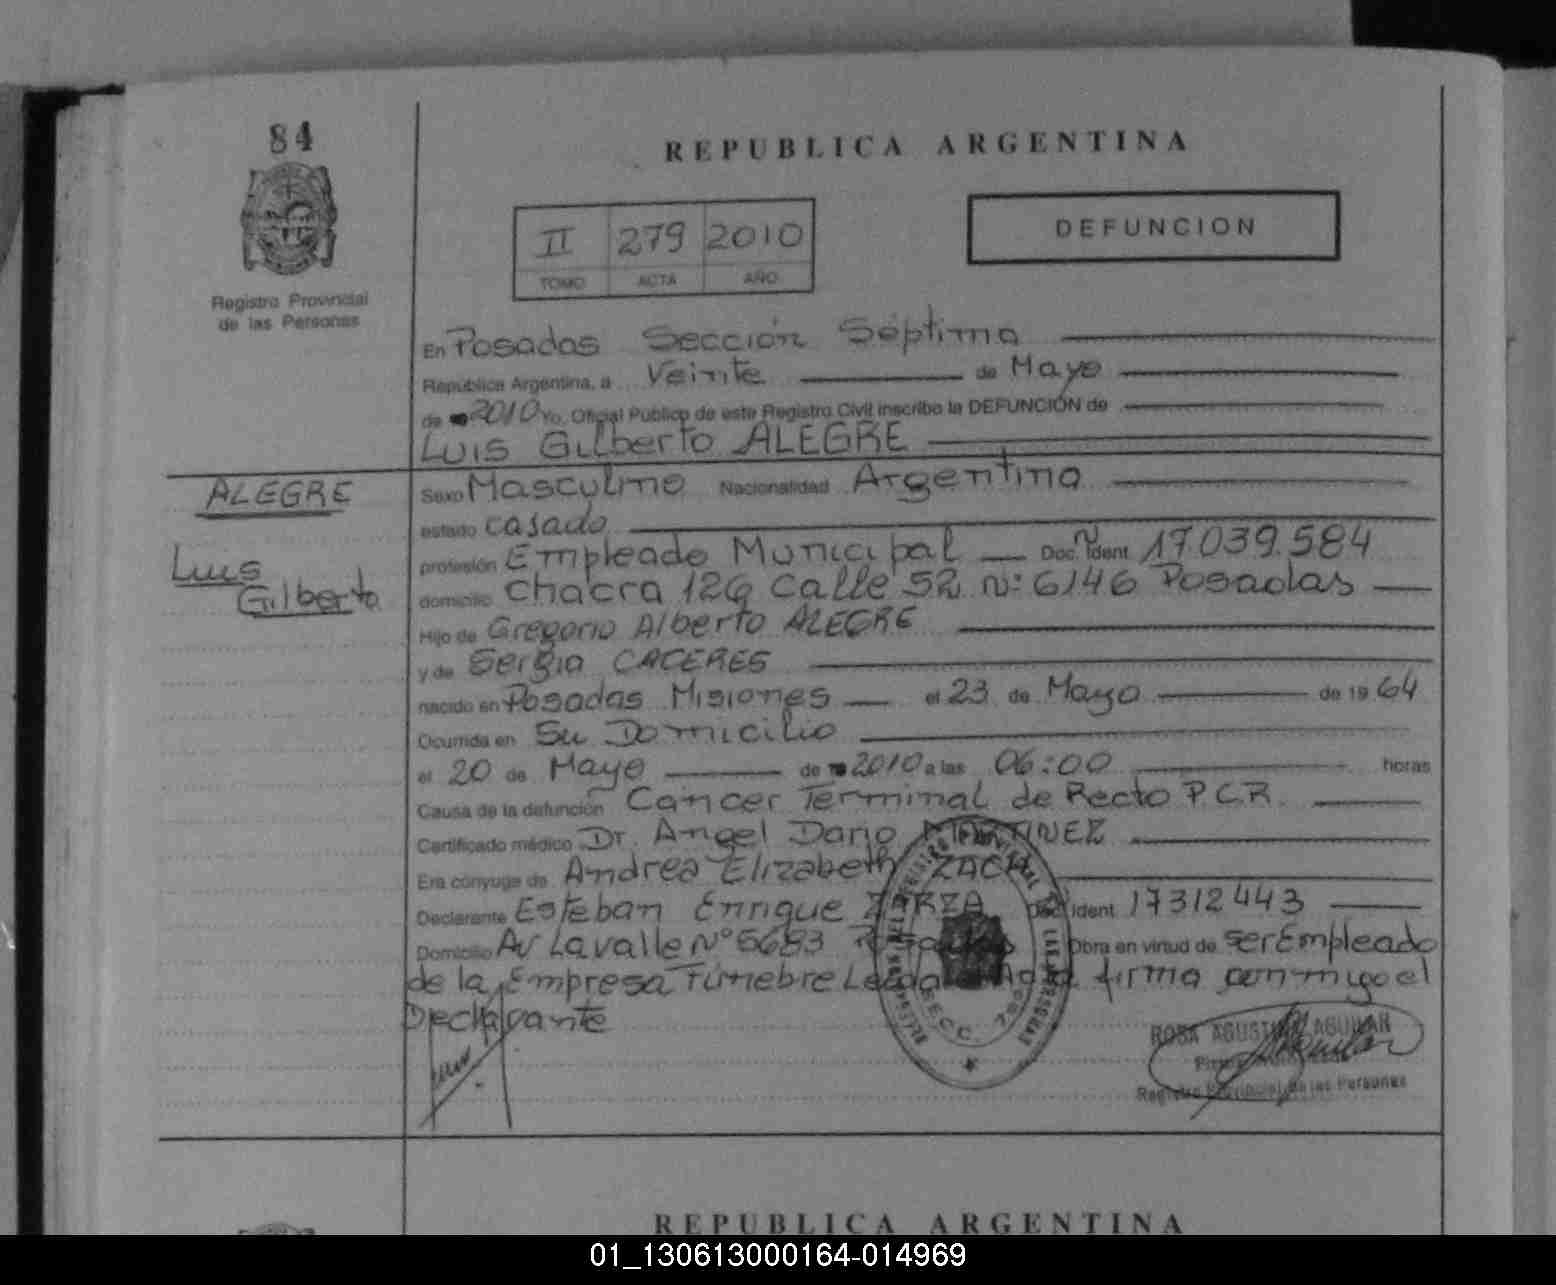 84
REPUBLICA ARGENTINA
DEFUNCION
II 279 2010
TOMO ACTA AÑO
Registro Provincial
de las Personas
En Posadas Sección Séptima
República Argentina, a Veinte de Mayo
de 2010 Yo, Oficial Público de este Registro Civil inscribo la DEFUNCIÓN de
Luis Gilberto ALEGRE
ALEGRE
Luis
Gilberto
Sexo Masculino Nacionalidad Argentina
estado casado
profesión Empleado Municipal Doc. Ident Nº 17.039.584
domicilio chacra 126 Calle 52 nº 6146 Posadas
Hijo de Gregorio Alberto ALEGRE
y de Sergia CACERES
nacido en Posadas Misiones el 23 de Mayo de 1964
Ocurrida en Su Domicilio
el 20 de Mayo de 2010 a las 06:00 horas
Causa de la defunción Cáncer Terminal de Recto P.C.R.
Certificado médico Dr. Angel Dario MARTINEZ
Era cónyuge de Andrea Elizabeth
Declarante Esteban Enrique ZARZA Doc. Ident 17312443
Domicilio Av Lavalle Nº 5683 Posadas Obra en virtud de ser Empleado
de la Empresa Fúnebre firma conmigo el
Declarante
ROSA AGUSTINA AGUILAR
Registro Provincial de las Personas
REPUBLICA ARGENTINA
01_130613000164-014969